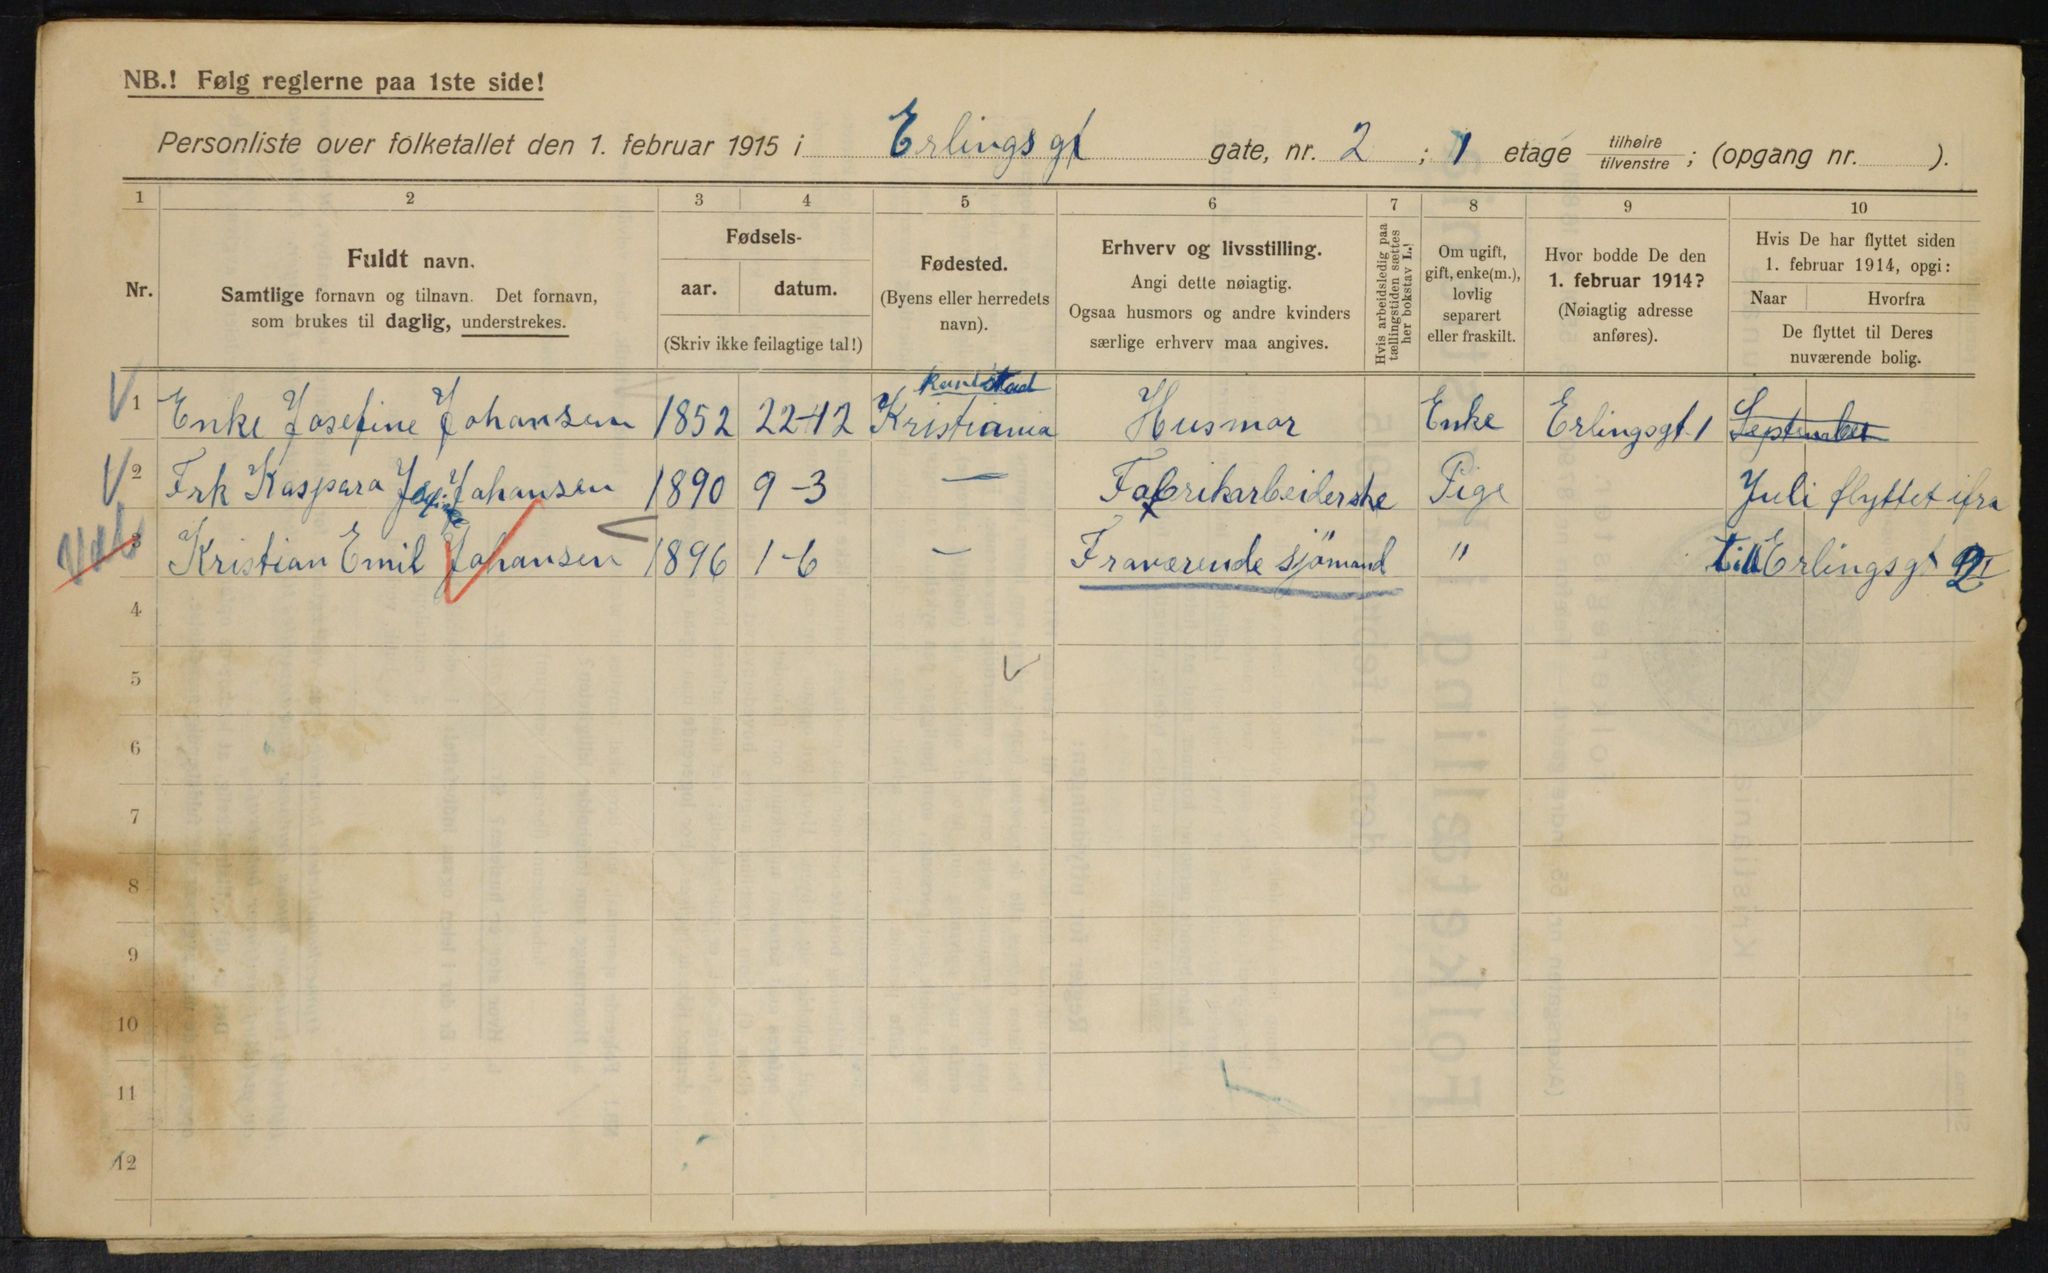 NB.! Følg reglerne paa 1ste side!
Personliste over folketallet den 1. februar 1915 i Erlingsgt gate, nr. 2 ; 1 etage tilhøire / tilvenstre ; (opgang nr. ).
1 2 3 4 5 6 7 8 9 10
Nr.
Fuldt navn.
Samtlige fornavn og tilnavn. Det fornavn,
som brukes til daglig, understrekes.
Fødsels-
aar. datum.
(Skriv ikke feilagtige tal!)
Fødested.
(Byens eller herredets
navn).
Erhverv og livsstilling.
Angi dette nøiagtig.
Ogsaa husmors og andre kvinders
særlige erhverv maa angives.
Hvis arbeidsledig paa
tællingstiden sættes
her bokstav L.!
Om ugift,
gift, enke(m.),
lovlig
separert
eller fraskilt.
Hvor bodde De den
1. februar 1914?
(Nøiagtig adresse
anføres).
Hvis De har flyttet siden
1. februar 1914, opgi:
Naar Hvorfra
De flyttet til Deres
nuværende bolig.
1 Enke Josefine Johansen 1852 22-12 Kristiania Husmor Enke Erlingsgt. 1 September
2 Frk Kaspara Johansen 1890 9-3 — Fabrikarbeiderske Pige Juli flyttet ifra
3 Kristian Emil Johansen 1896 1-6 — Fraværende sjömand " till Erlingsgt 2 I
4
5
6
7
8
9
10
11
12